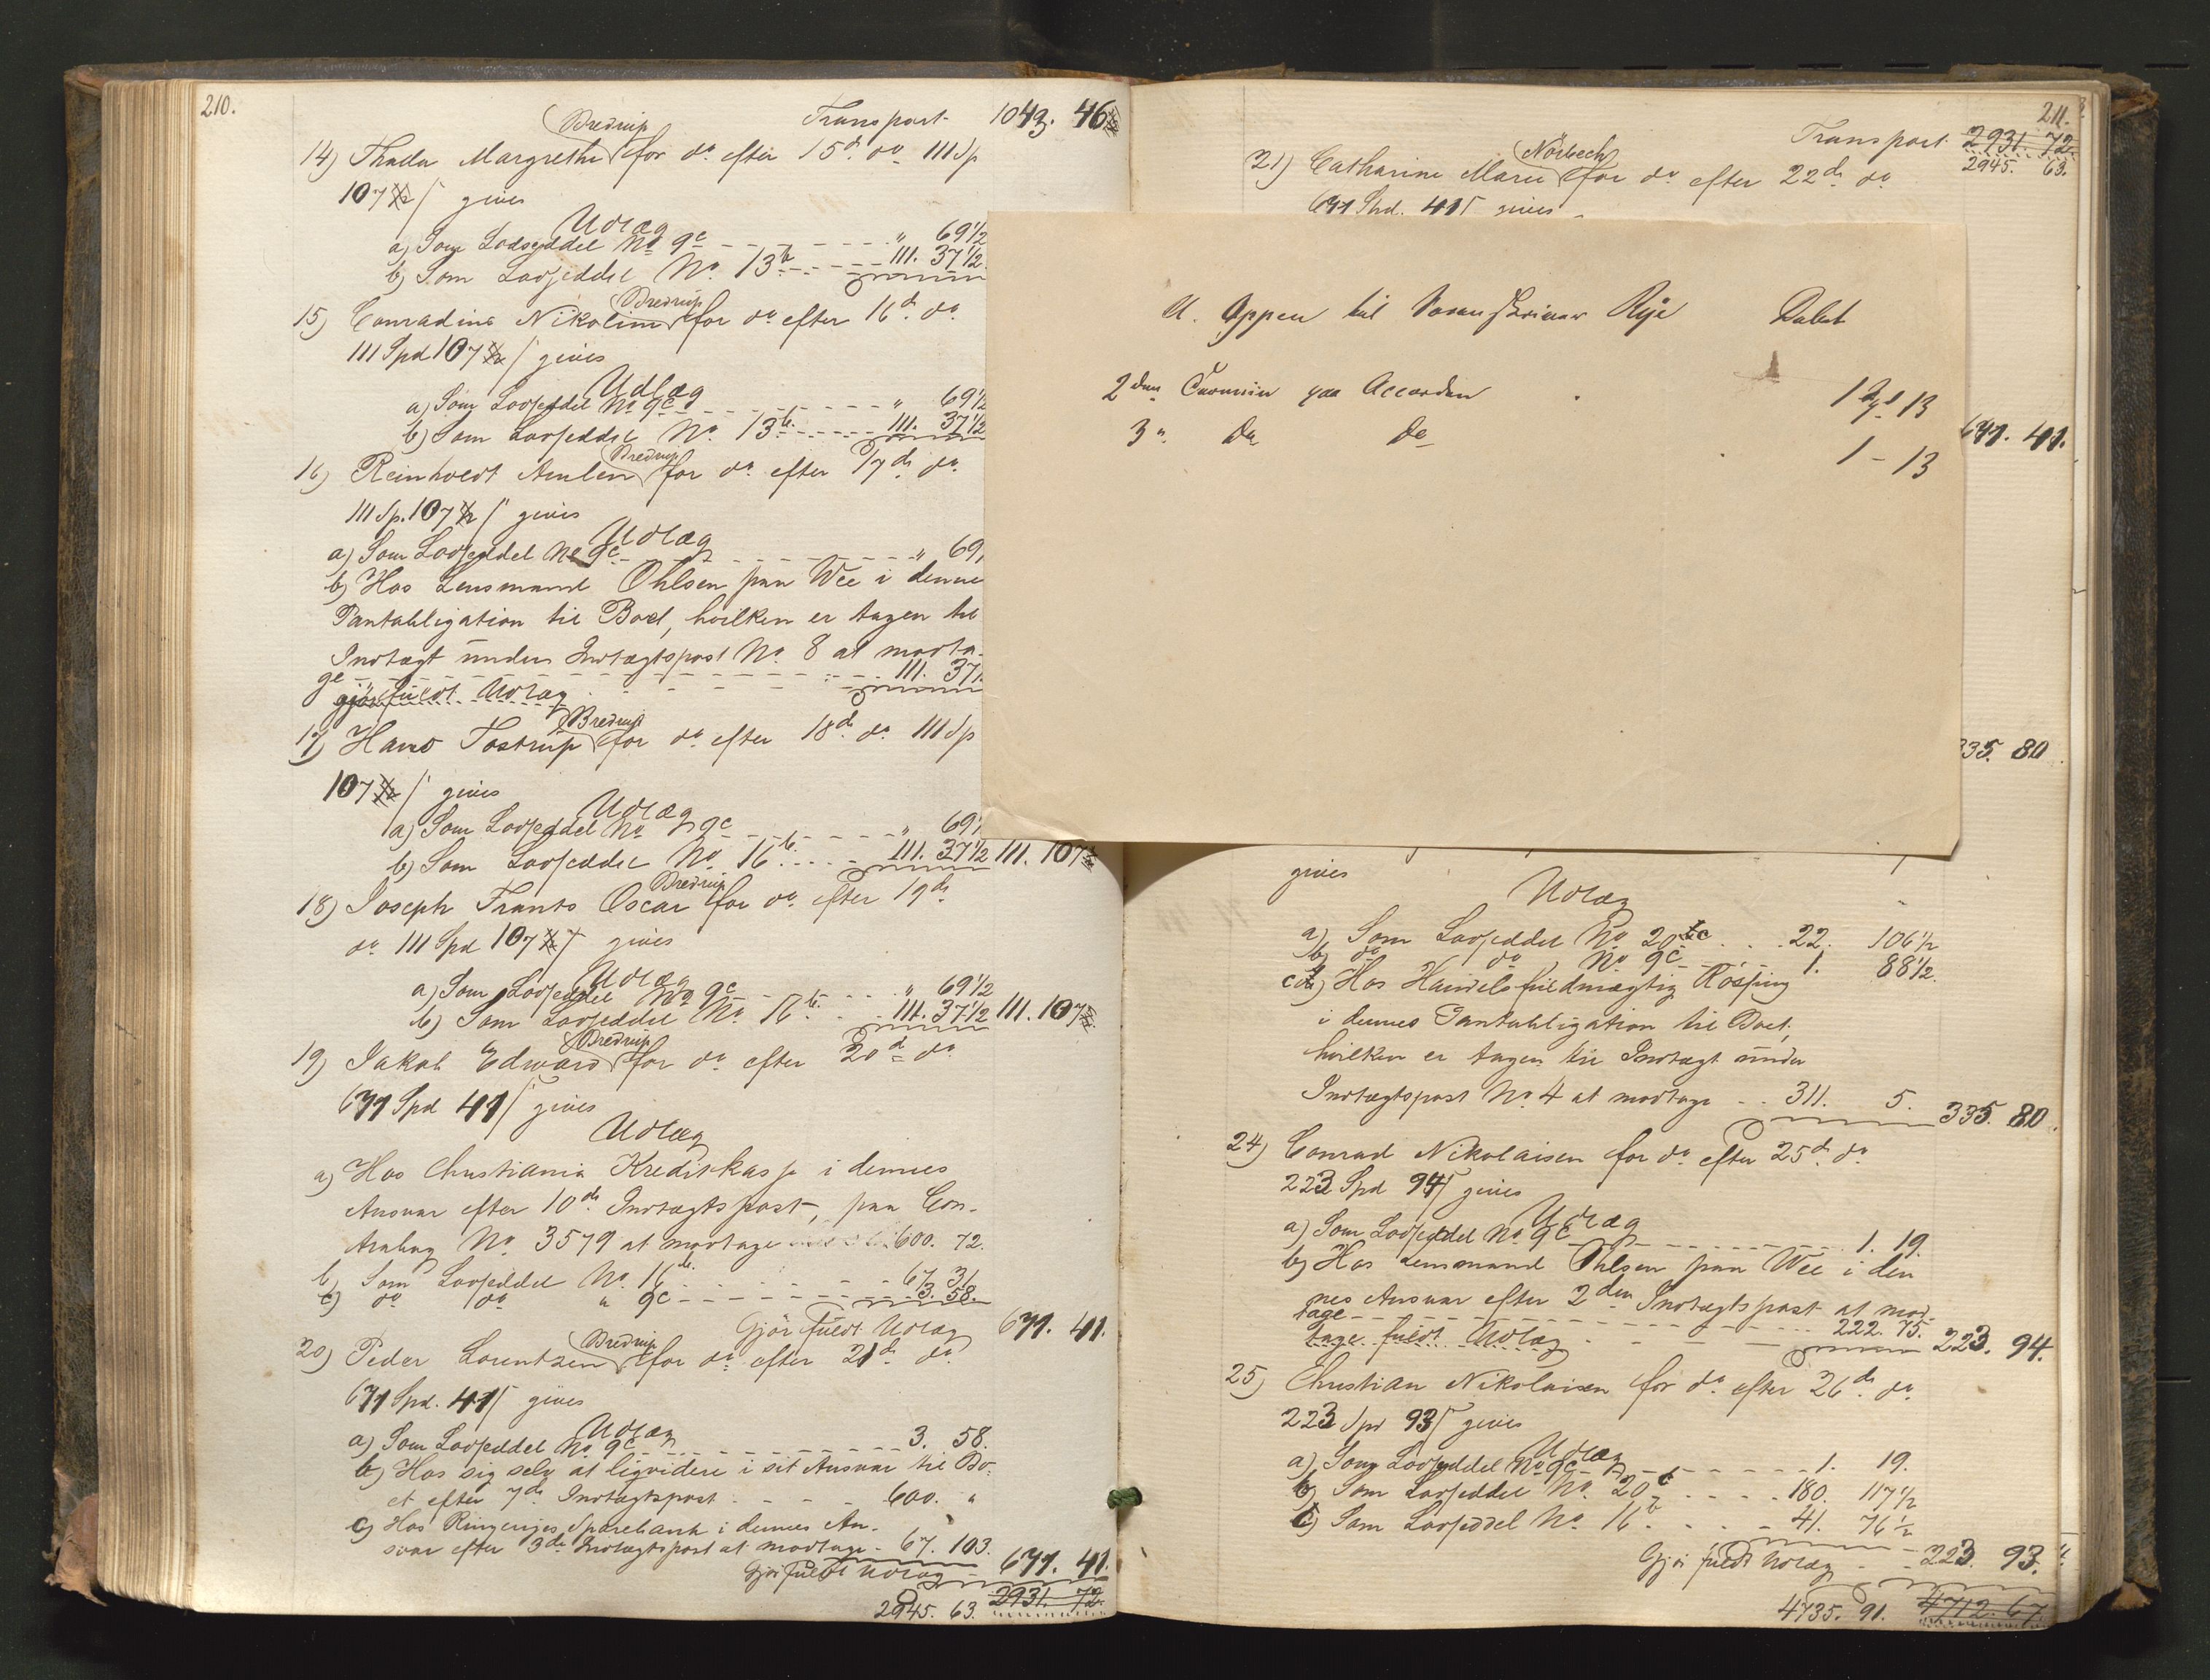 210.
Transport 1043. 46
Bredrup
14) Thada Margrethe for do. efter 15de do. 111 Sp
107 ß gives
Udlæg
a) Som Lodseddel No 9c - - - - - - " 69 1/2
b) Som Lodseddel No. 13b. - - - - - 111. 37 1/2
Bredrup
15) Conradine Nikoline for do. efter 16de. do.
111 Spd 107 ß gives
Udlæg
a) Som Lodseddel No 9c - - - - - - " 69 1/2
b) Som Lodseddel No. 13b. - - - - - 111. 37 1/2
Bredrup
16) Reinholdt Amlen for do. efter 17de do.
111 Sp. 107 ß gives
Udlæg
a) Som Lodseddel No 9c - - - - - - " 69
b) Hos Lensmand Ohlsen paa Wee i dennes
Pantobligation til Boet, hvilken er tagen til
Indtægt under Indtægtspost No. 8 at modta-
ge - - - - - - 111. 37
gjør fuldt Udlæg
Bredrup
17) Hans Tostrup for do. efter 18de do. 111 Sp
107 ß gives
Udlæg
a) Som Lodseddel No 9c - - - - - - " 69
b) Som Lodseddel No. 16b. - - - - 111. 37 1/2 111. 107
Bredrup
18) Joseph Frants Oscar for do. efter 19de
do. 111 Spd 107 ß gives
Udlæg
a) Som Lodseddel No 9c - - - - - " 69 1/2
b) Som Lodseddel No. 16b. - - 111. 37 1/2 111. 107
Bredrup
19) Jakob Edward for do. efter 20de do
671 Spd 41 ß gives
Udlæg
a) Hos Christiania Kreditkasse i dennes
Ansvar efter 10de. Indtægtspost, paa Con-
trabog No. 3579 at modtage 600. 72.
b) Som Lodseddel No. 16 - - - - - - 67. 31
c) do do " 9c - - - - - - 3. 58.
Gjør fuldt Udlæg 671. 41.
Bredrup
20) Peder Lorentzen for do. efter 21de. do.
671 Spd. 41 ß gives
Udlæg
a) Som Lodseddel No 9c - - - - - - 3. 58.
b) Hos sig selv at liqvidere i sit Ansvar til Bo-
et efter 7de. Indtægtspost - - - - 600. "
c) Hos Ringeriges Sparebank i dennes An-
svar efter 3die Indtægtspost at modtage - 67. 103.
Gjør fuldt Udlæg - 671. 41.
2945. 63. 2931. 72.
211.
Transport 2931. 72.
2945. 63.
Nörbech
21) Catharine Marie for do. efter 22de. do.
671 Spd. 41 ß gives
U. Oppen til Sorenskriver Rye Debet
2den Termin paa Accorden 1 Spd 13
3 " Do Do 1 - 13
671. 41.
335. 80
gives
Udlæg
a) Som Lodseddel No. 20c . . . 22. 106 1/2
b) do do No. 9c - - - - 1. 88 1/2.
c) Hos Handelsfuldmægtig Rösping
i dennes Pantobligation til Boet,
hvilken er tagen til Indtægt under
Indtægtspost No. 4 at modtage - - 311. 5. 335. 80.
24) Conrad Nikolaisen for do. efter 25de. do.
223 Spd 94 ß gives
Udlæg
a) Som Lodseddel No. 9c - - - - - - 1. 19.
b) Hos Lensmand Ohlsen paa Wee i den
nes Ansvar efter 2den Indtægtspost at mod-
tage - - - - - - 222. 75.
tage fuldt Udlæg - - - 223. 94.
25) Christian Nikolaisen for do. efter 26de. do.
223 Spd 93 ß gives
Udlæg
a) Som Lodseddel No. 9c - - - - - 1. 19.
b) Som Lodseddel No. 20c - - - - 180. 117 1/2
c) Som Lodseddel No. 16b - - - - 41. 76 1/2
Gjør fuldt Udlæg - - 223. 93.
4735. 91. 4712. 67.